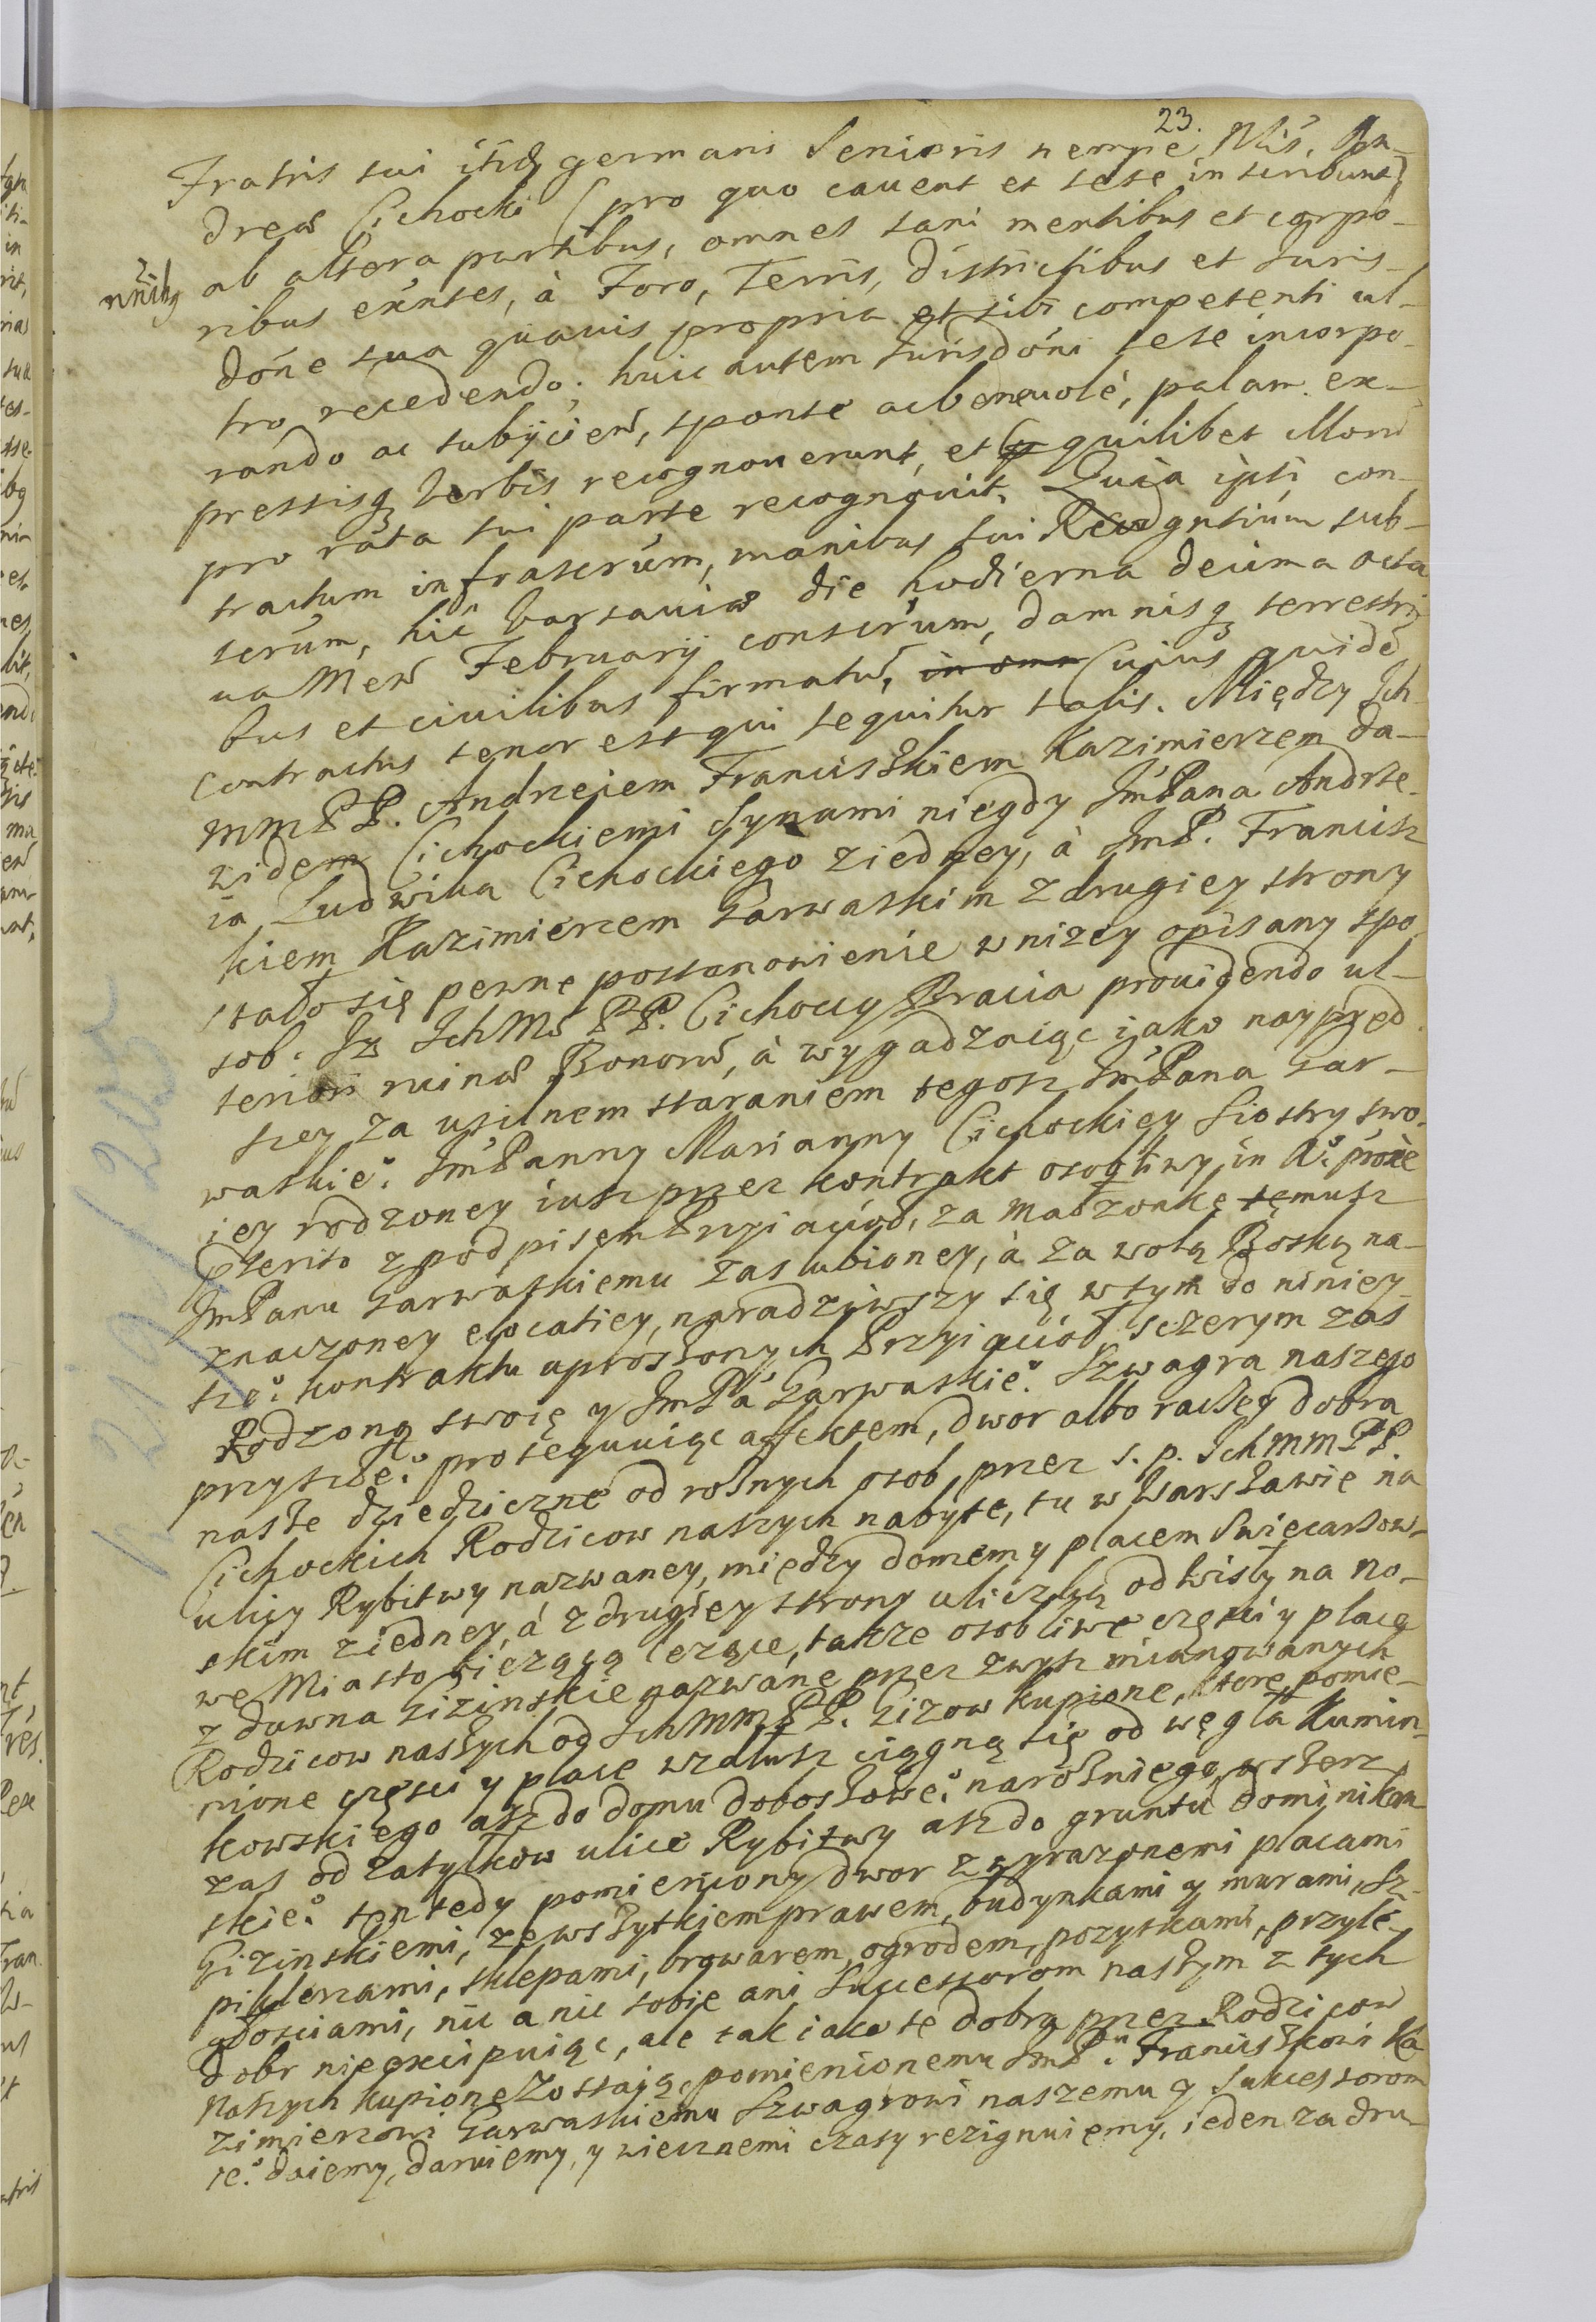 23.
Fratris sui itidq germani Senioris nempe Nlis. An-
dreas Cichocki (pro quo cavent et sese inscribunt)
ab altera partibus, omnes sani mentibus et corpo-
ribus exntes, à Foro, Terris, Districtibus et Juris-
done sua quavis propria et sibi competenti ul-
tro recedendo; huic autem Jurisdoni sese incorpo-
rando ac subijcien, sponte ac benevolè, palam ex-
pressisq verbis recognoverunt, et quilibet illorum
pro rata sui parte recognovit, Quia ipsi con-
tractum infrascrum, manibus sui Recogntium sub-
scrum, hic Varsaviae die hodierna decima octa-
va Men Februarij conscrum, damnisq terrestri
bus et civilibus firmatum, Cuius quide
contractus tenor est qui sequitur talis. Między Ich
MMPP. Andrzeiem Franciszkiem Kazimierzem Da-
widem Cichockiemi Synami niegdy JmPana Andrze-
ia Ludwika Cichockiego z iedney, à JmP. Francisz
kiem Kazimierzem Garwaskim z drugiey strony
stało się pewne postanowienie w nizey opisany spo
sob: Iz IchMć PP. Cichoccy Bracia providendo ul-
teriori ruinae Bonorum, à wygadzaiąc iako naypręd
szey za usilnem staraniem tegosz JmPana Gar-
waskie°. JmPanny Marianny Cichockiey Siostry swo-
iey rodzoney iusz przez kontrakt osobliwy in A°. proxe
pterito z podpisem Przyiacioł, za Małżonkę temusz
JmPanu Garwaskiemu zaslubioney, à za wolą Boską na-
znaczoney elocatiey, naradziwszy się w tym do niniey-
sze°. kontraktu uproszonych Przyiacioł, sczerym zas
Rodzoną swoię y JmPa Garwaskie°. Szwagra naszego
przyszłe°. prosequuiąc affektem, dwor albo raczey dobra
nasze dziedziczne od roznych osob, przez s. p. IchMMPP.
Cichockich Rodzicow naszych nabyte, tu w Warszawie na
ulicy Rybitwy nazwaney, między domem y placem Swięcartow-
skim z iedney, à z drugiey strony uliczką od Wisły na no-
we Miasto biezącą lezące, takze osobliwe częsci y place
z dawna Gizinskie nazwane przez zwysz mianowanych
Rodzicow naszych od IchMMPP. Gizow kupione, ktore pomie-
nione częsci y place wzdłusz ciągną się od węgła Kumin-
kowskiego asz do domu Doboszowe°. narożniego, wszerz
zas od zatyłkow ulice Rybitwy asz do gruntu Dominikan
skie°. ten tedy pomieniony dwor z wyrazonemi placami
Gizinskiemi, ze wszytkiem prawem, budynkami y murami, sz-
piklerzami, sklepami, browarem, ogrodem, pozytkami, przyle-
głosciami, nic a nic sobie ani Successorom naszym z tych
dobr nieexcipuiąc, ale tak iako te dobra przez Rodzicow
Naszych kupione zostaią, pomienionemu JmPu. Franciszkowi Ka
zimierzowi Garwaskiemu Szwagrowi naszemu y Sukcessorom
ie°. daiemy, daruiemy, y wiecznemi czasy rezignuiemy, ieden za dru-